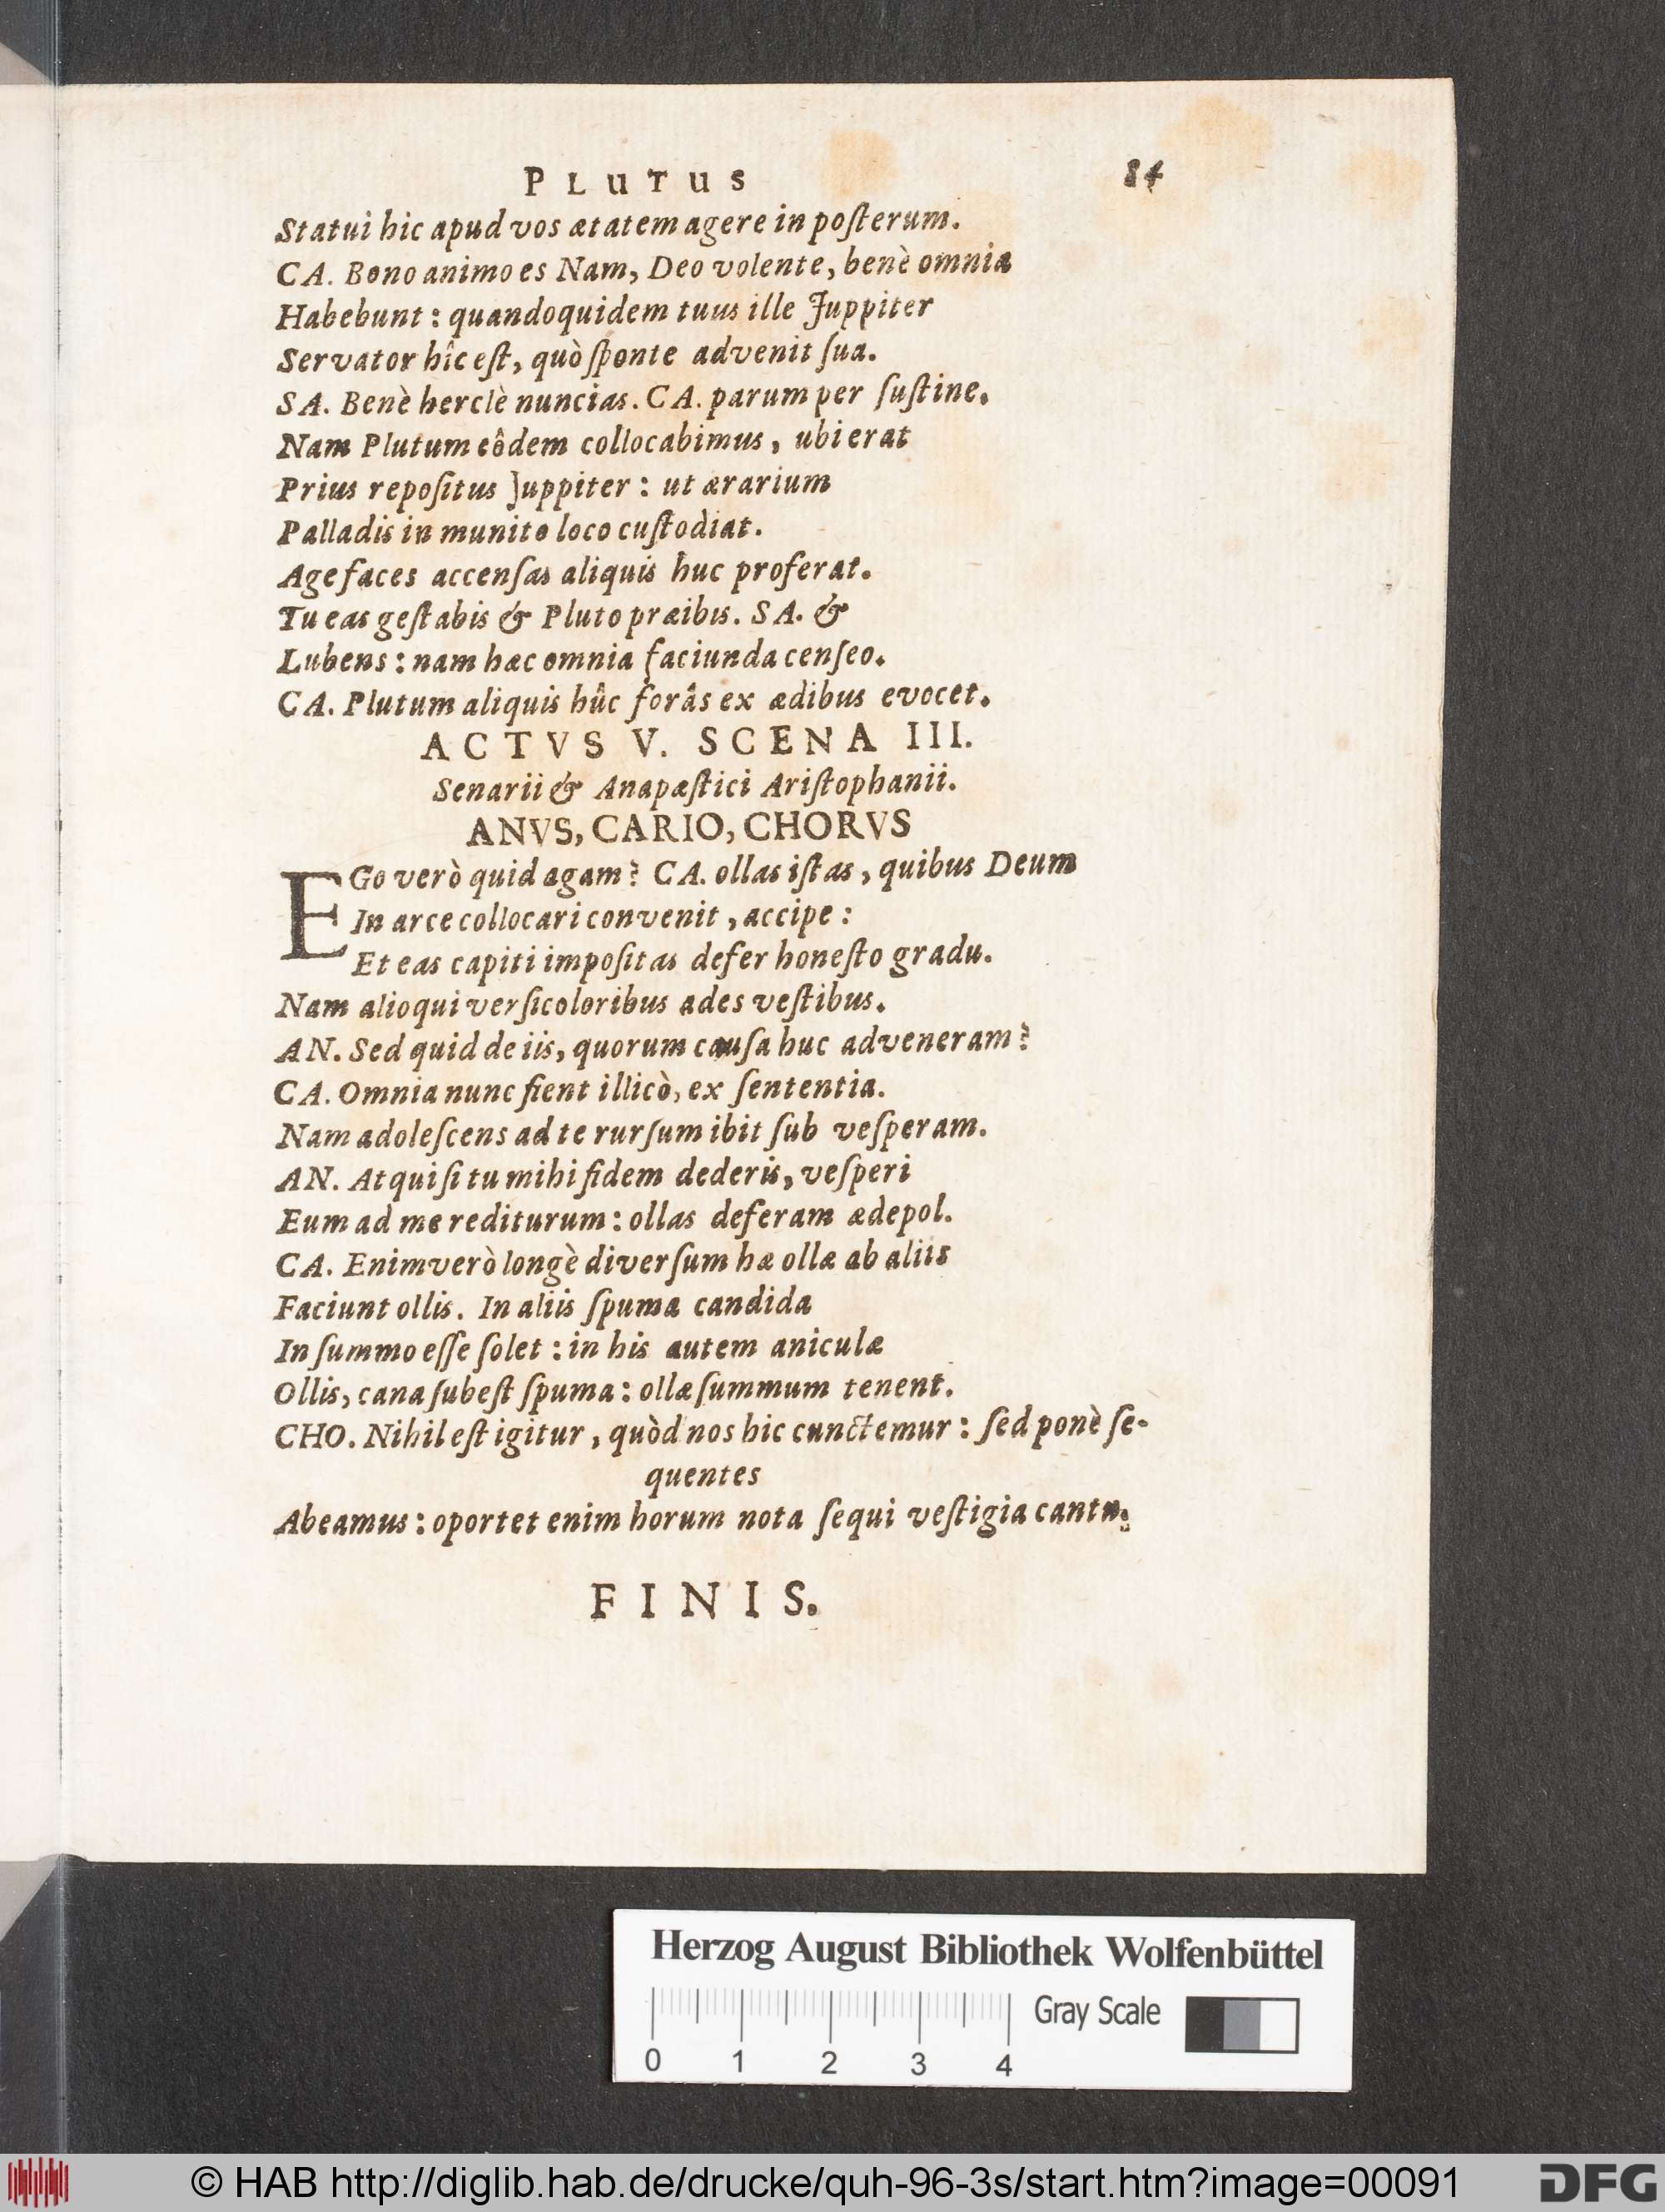 PLUTUS 84
Statui hic apud vos ætatem agere in poſterum.
CA. Bono animo es Nam, Deo volente, benè omnia
Habebunt : quandoquidem tuus ille Juppiter
Servator hîc eſt, quò ſponte advenit ſua.
SA. Benè herclè nuncias. CA. parumper ſuſtine.
Nam Plutum eôdem collocabimus, ubi erat
Prius repoſitus Juppiter : ut ærarium
Palladis in munito loco cuſtodiat.
Age faces accenſas aliquis huc proferat.
Tu eas geſtabis & Pluto præibis. SA. &
Lubens : nam hæc omnia faciunda cenſeo.
CA. Plutum aliquis hûc forâs ex ædibus evocet.
ACTVS V. SCENA III.
Senarii & Anapæſtici Ariſtophanii.
ANVS, CARIO, CHORVS
EGo verò quid agam? CA. ollas iſtas, quibus Deum
In arce collocari convenit, accipe :
Et eas capiti impoſitas defer honeſto gradu.
Nam alioqui verſicoloribus ades veſtibus.
AN. Sed quid de iis, quorum cauſa huc adveneram?
CA. Omnia nunc fient illicò, ex ſententia.
Nam adoleſcens ad te rurſum ibit ſub veſperam.
AN. Atqui ſi tu mihi fidem dederis, veſperi
Eum ad me rediturum : ollas deferam ædepol.
CA. Enimverò longè diverſum hæ ollæ ab aliis
Faciunt ollis. In aliis ſpuma candida
In ſummo eſſe ſolet : in his autem aniculæ
Ollis, cana ſubeſt ſpuma : ollæ ſummum tenent.
CHO. Nihil eſt igitur, quòd nos hic cunctemur : ſed ponè ſe-
quentes
Abeamus : oportet enim horum nota ſequi veſtigia cantu.
FINIS.
Herzog August Bibliothek Wolfenbüttel
Gray Scale
0 1 2 3 4
© HAB http://diglib.hab.de/drucke/quh-96-3s/start.htm?image=00091
DFG